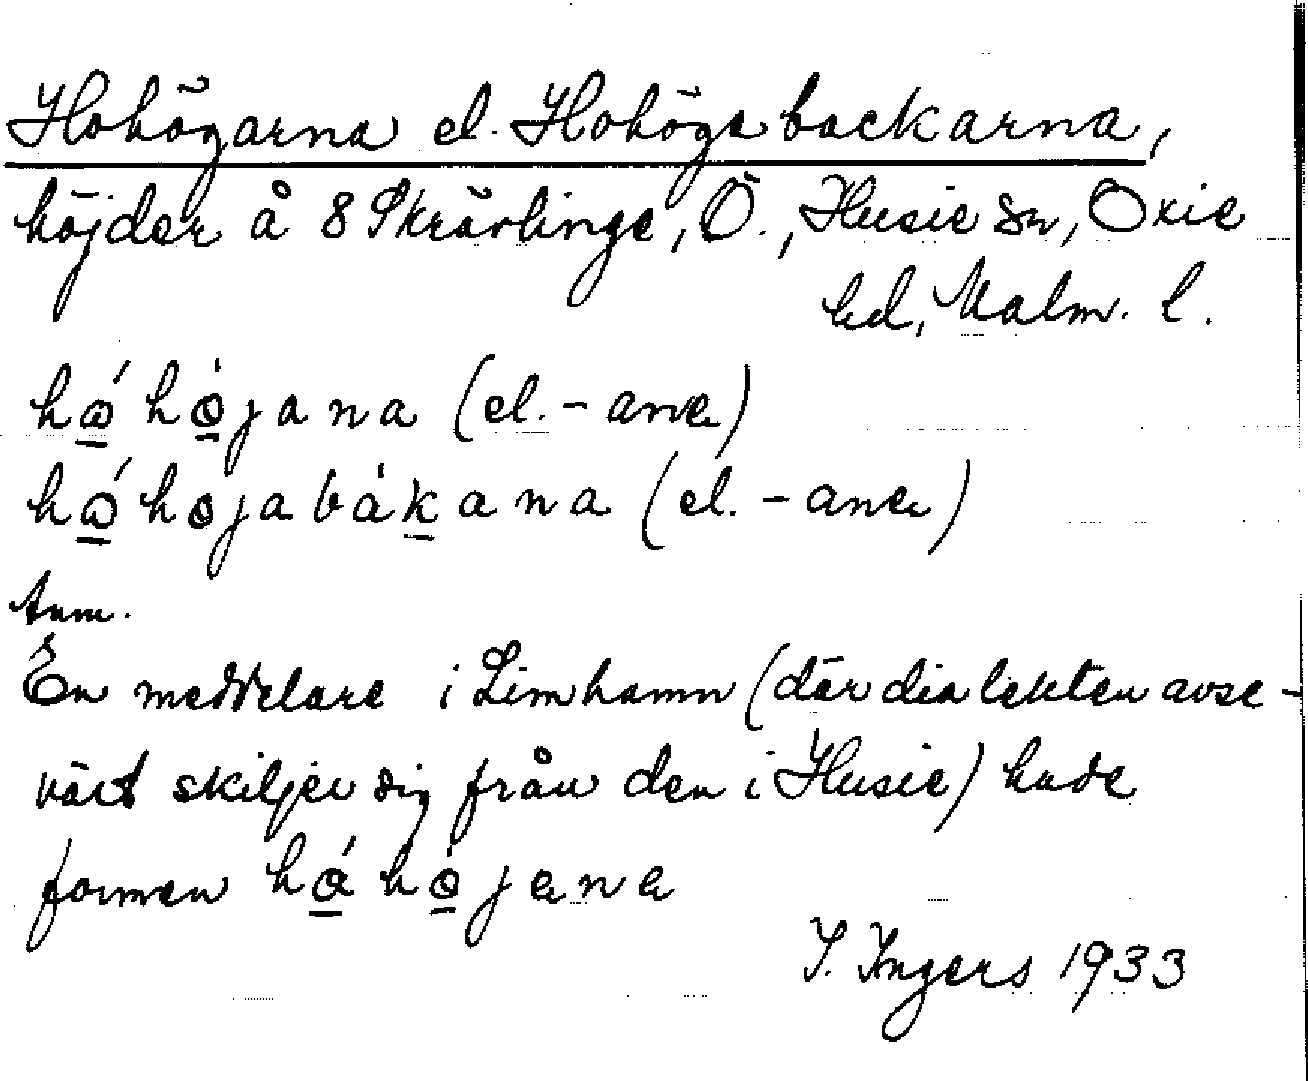 Hohögarna el. Hohögabackarna,
höjder å 8 Skrävlinge, Ö., Husie sn, Oxie
hd, Malm. l.
hǿhøjana (el. -anɐ)
hǿhøjabákana (el. -anɐ)
Anm.
En meddelare i Limhamn (där dialekten avse-
värt skiljer sig från den i Husie) hade
formen hǻhøjɐnɐ
I. Ingers 1933